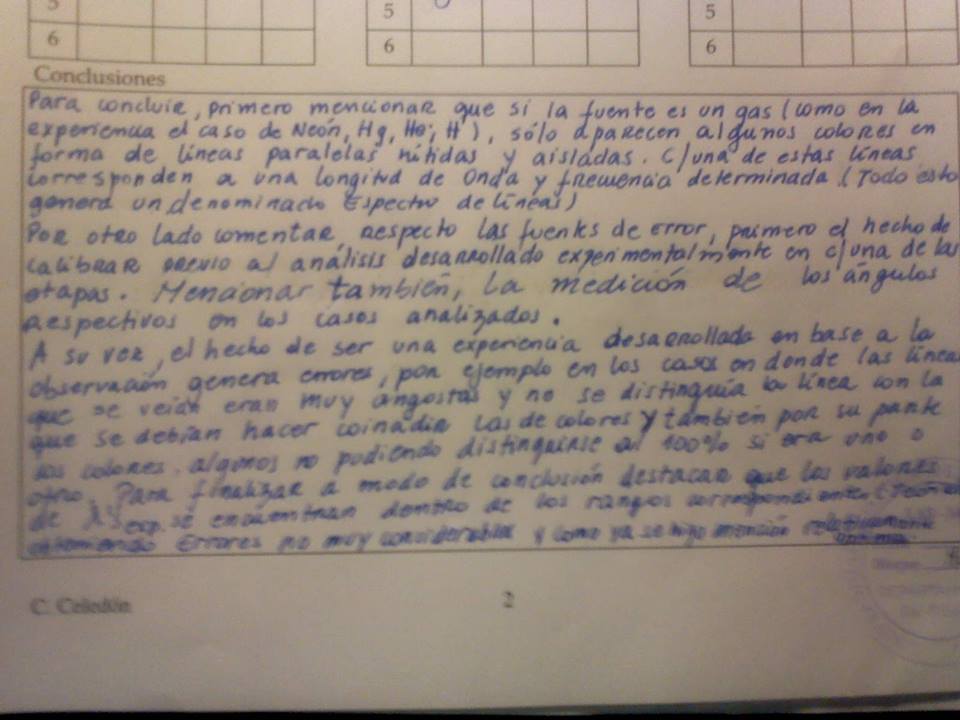 5 5 5
6 6 6
Conclusiones
Para concluir, primero mencionar que si la fuente es un gas (como en la
experiencia el caso de Neón, Hg, He, H), sólo aparecen algunos colores en
forma de líneas paralelas nítidas y aisladas. c/una de estas líneas
corresponden a una longitud de Onda y frecuencia determinada (Todo esto
genera un denominado Espectro de líneas)
Por otro lado comentar, respecto las fuentes de error, primero el hecho de
calibrar previo al análisis desarrollado experimentalmente en c/una de las
etapas. Mencionar también, la medición de los ángulos
respectivos en los casos analizados.
A su vez, el hecho de ser una experiencia desarrollada en base a la
observación genera errores, por ejemplo en los casos en donde las líneas
que se veían eran muy angostas y no se distinguía la línea con la
que se debían hacer coincidir las de colores y también por su parte
los colores. algunos no pudiendo distinguirse al 100% si era uno o
otro. Para finalizar a modo de conclusión destacar que los valores
de λ's exp. se encuentran dentro de los rangos correspondientes
obteniendo Errores no muy considerables y como ya se hizo mención
C. Celedón
2